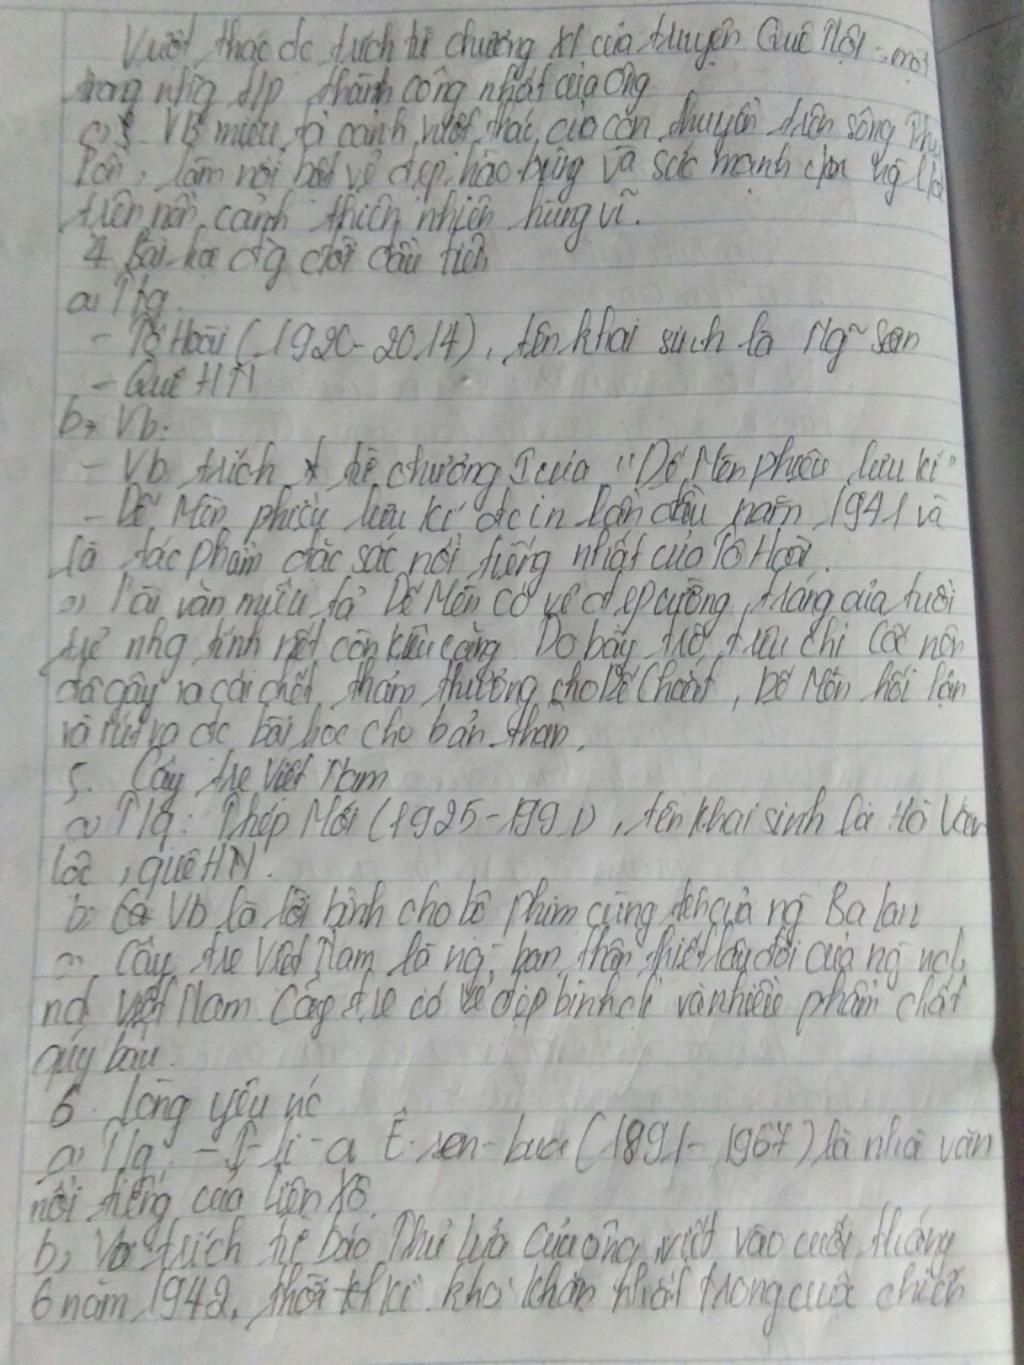 Vượt thác đc trích từ chương XI của truyện Quê Nội - một
trong nhg t/p thành công nhất của ông
VB miêu tả cảnh vượt thác của con thuyền trên sông Thu
Bồn, làm nổi bật vẻ đẹp hào hùng và sức mạnh của ng
trên nền cảnh thiên nhiên hùng vĩ.
4 Bài học đg đời đầu tiên
a, T/g
- Tô Hoài (1920-2014), tên khai sinh là Ng~ Sen
- Quê HN
b, Vb:
- Vb trích từ chương I của "Dế Mèn phiêu lưu kí"
- Dế Mèn phiêu lưu kí đc in lần đầu năm 1941 và
là tác phẩm đặc sắc nổi tiếng nhất của Tô Hoài.
Bài văn miêu tả Dế Mèn có vẻ đẹp cường tráng của tuổi
trẻ nhg tính nết còn kiêu căng. Do bày trò trêu chị Cốc nên
đã gây ra cái chết thảm thương cho Dế Choắt, Dế Mèn hối hận
và rút ra đc bài học cho bản thân.
5. Cây tre Việt Nam
a, T/g: Thép Mới (1925-1991), tên khai sinh là Hà Văn
Lộc, quê HN.
b: Vb là lời bình cho bộ phim cùng tên của ng Ba lan
Cây tre Việt Nam là ng bạn thân thiết lâu đời của ng nd
nd Việt Nam. Cây tre có vẻ đẹp bình dị và nhiều phẩm chất
quý báu.
6. Lòng yêu nc
a, T/g: - I-li-a Ê-ren-bua (1891-1967) là nhà văn
nổi tiếng của Liên Xô.
b, Vb trích từ báo Thử lửa của ông viết vào cuối tháng
6 năm 1942, thời kì khó khăn nhất trong cuộc chiến